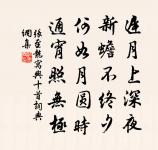 月上深夜
新蟾不終夕
何如月圓時
通宵照無極
張至龍寓興十首詞典
網集